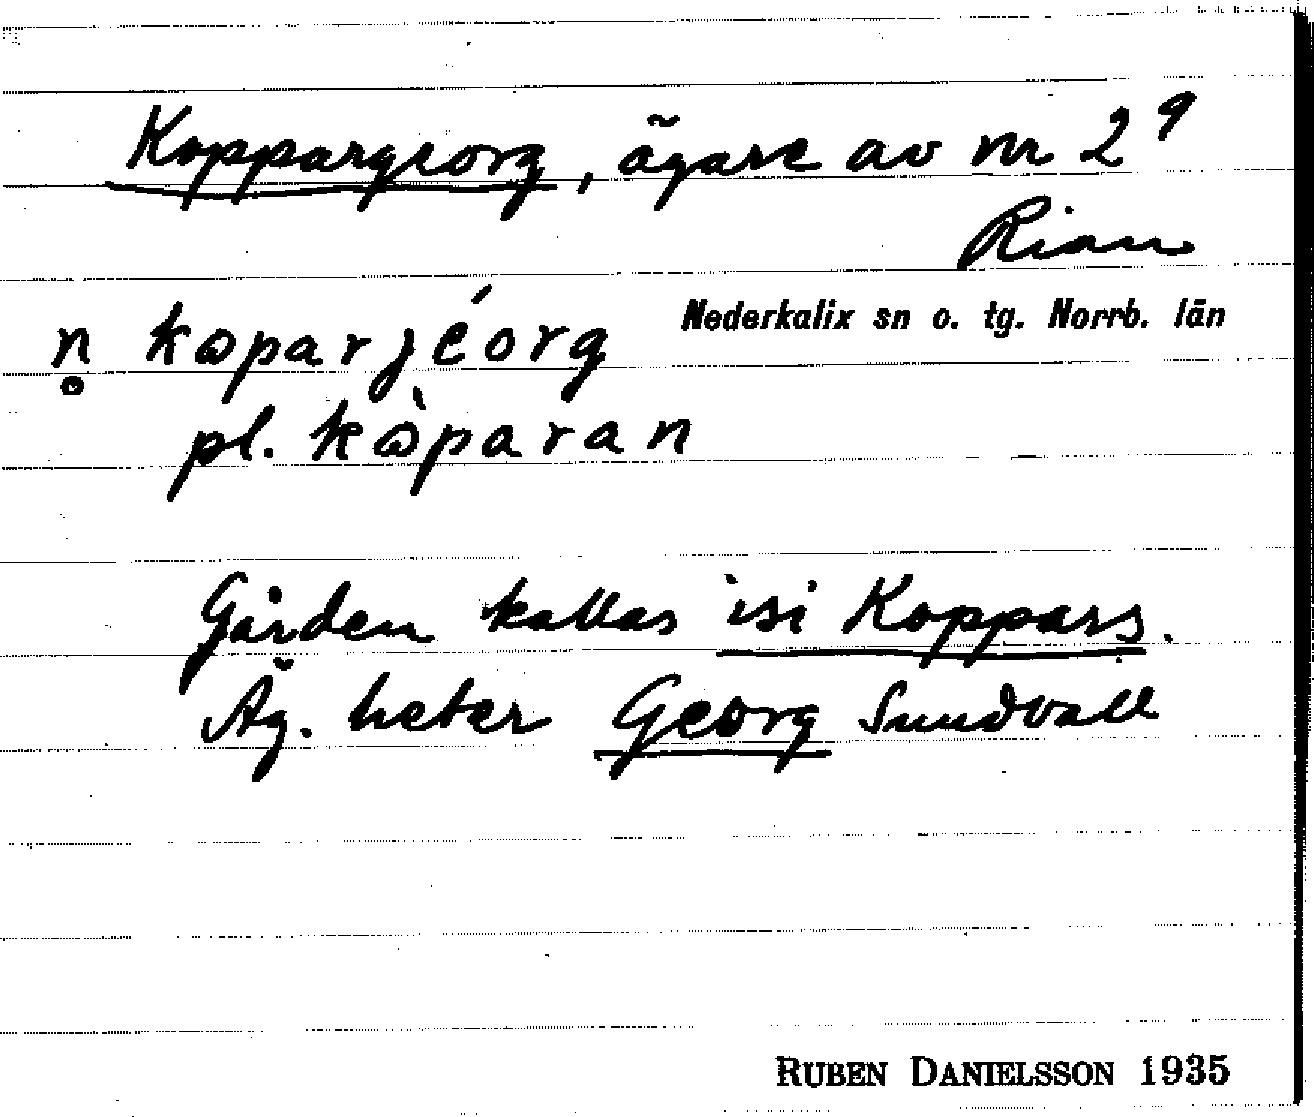 Koppargeorg, ägare av nr 2⁹
Rian
Nederkalix sn o. tg. Norrb. län
n̥ kɷparjéorg
pl. kɷ̀paran
Gården kallas isi Koppars.
Äg. heter Georg Sundvall
RUBEN DANIELSSON 1935